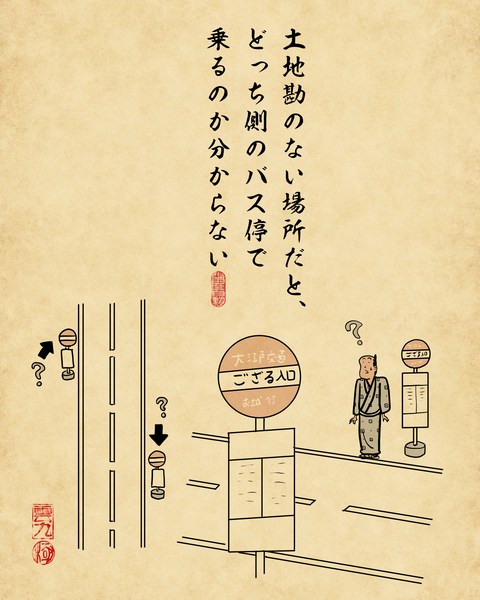 土地勘のない場所だと、
どっち側のバス停で
乗るのか分からない
?
?
?
大江戸交通
ござる入口
おしろ行
ござる入口